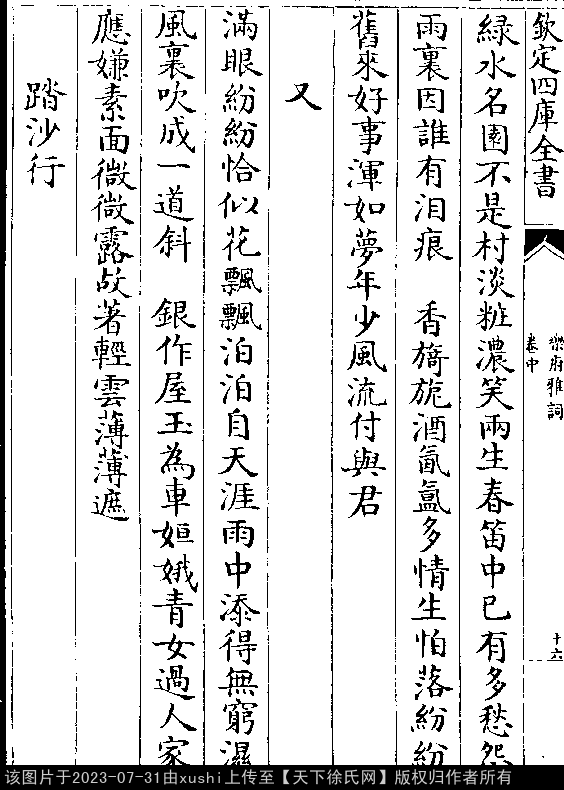 欽定四庫全書
樂府雅詞
卷中
十六
綠水名園不是村淡粧濃笑兩生春笛中已有多愁怨
雨裏因誰有泪痕　香旖旎酒氤氳多情生怕落紛紛
舊來好事渾如夢年少風流付與君
又
滿眼紛紛恰似花飄飄泊泊自天涯雨中添得無窮濕
風裏吹成一道斜　銀作屋玉為車姮娥青女過人家
應嫌素面微微露故著輕雲薄薄遮
踏沙行
该图片于2023-07-31由xushi上传至【天下徐氏网】版权归作者所有